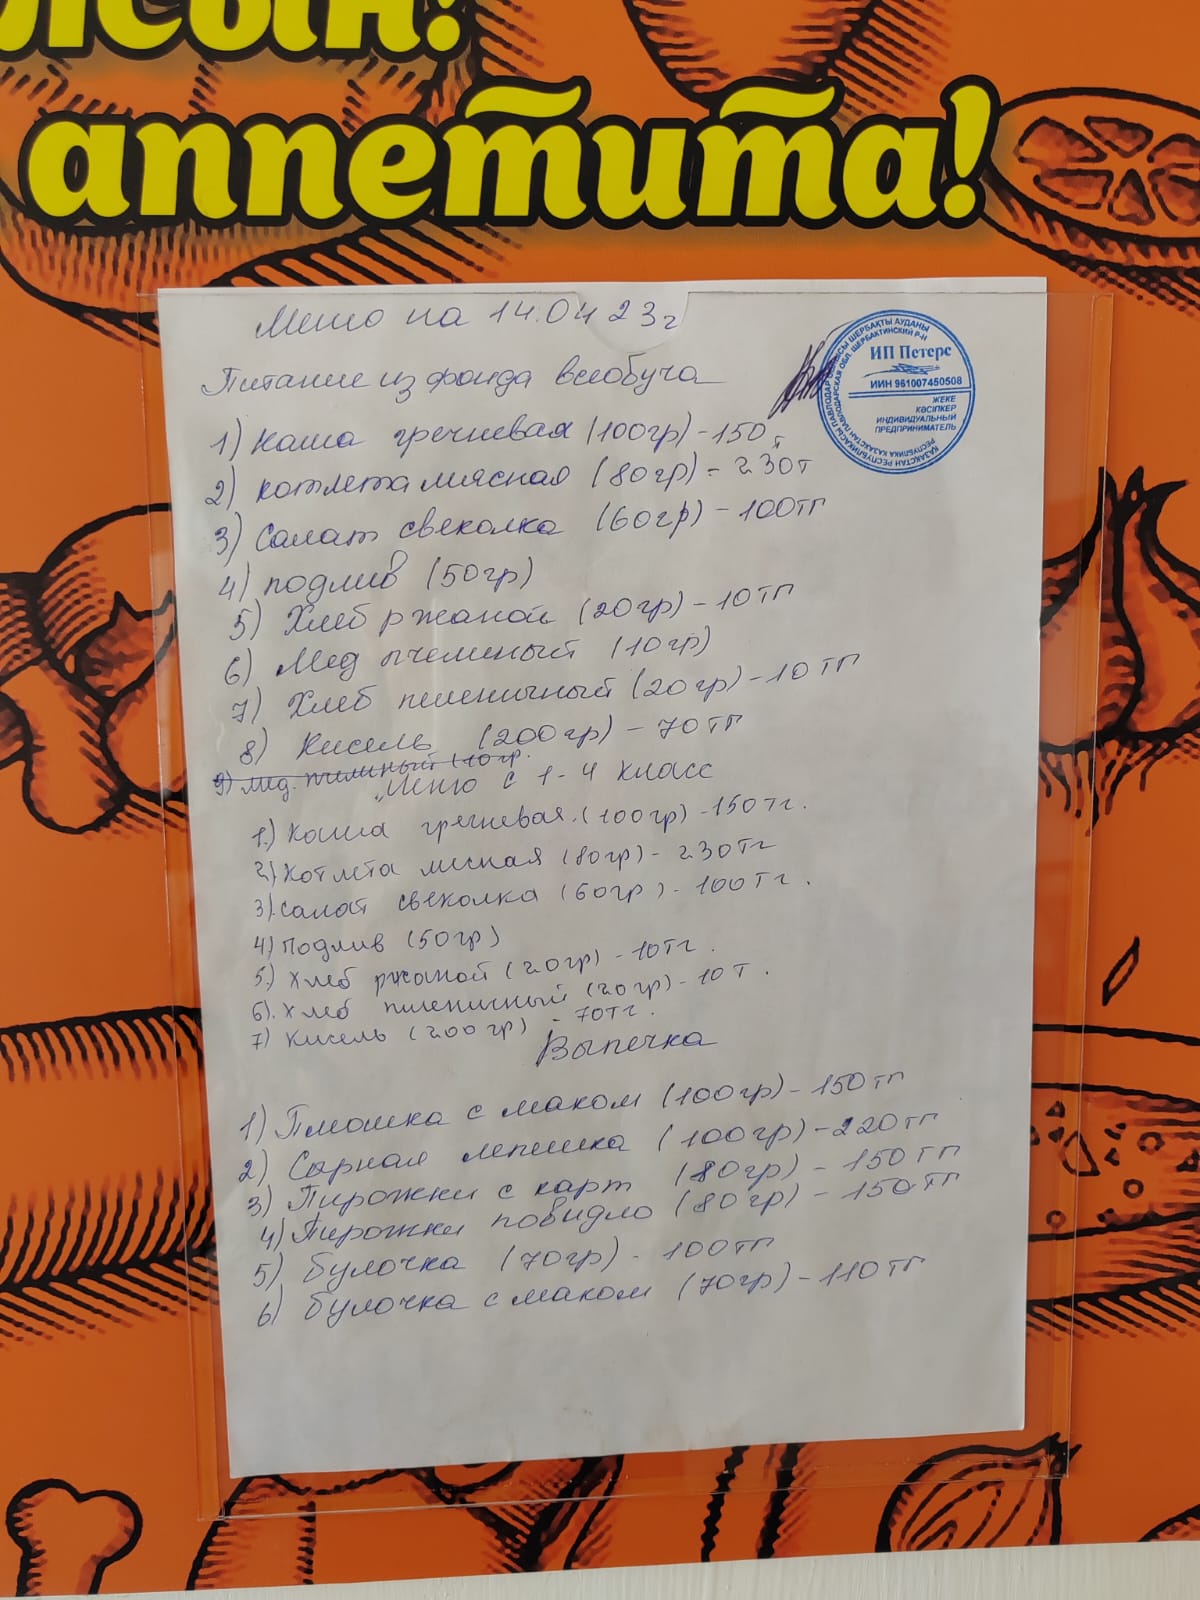 лсын!
аппетита!
Меню на 14.04 23г
Питание из фонда всеобуча
1) Каша гречневая (100гр) - 150 т
2) котлета мясная (80гр) - 230т
3) Салат свеколка (60гр) - 100тг
4) подлив (50гр)
5) Хлеб ржаной (20гр) - 10тг
6) Мёд пчелиный (10гр)
7) Хлеб пшеничный (20гр) - 10 тг
8) Кисель (200гр) - 70тг
9) Мёд. пчелиный (10гр.
"Меню с 1-4 класс
1.) Каша гречневая. (100гр) - 150тг.
2) Котлета мясная (80гр) - 230тг
3). Салат свеколка (60гр) - 100тг.
4) Подлив (50гр)
5.) Хлеб ржаной (20гр) - 10тг.
6). Хлеб пшеничный (20гр) - 10 т.
7) Кисель (200гр) - 70тг.
Выпечка
1) Плюшка с маком (100гр) - 150тг
2) Сырная лепешка (100гр) - 220тг
3) Пирожки с карт (80гр) - 150тг
4) Пирожки повидло (80гр) - 150тг
5) Булочка (70гр) - 100тг
6) Булочка с маком (70гр) - 110тг
ИП Петерс
ИИН 961007450508
ЖЕКЕ
КӘСІПКЕР
ИНДИВИДУАЛЬНЫЙ
ПРЕДПРИНИМАТЕЛЬ
ҚАЗАҚСТАН РЕСПУБЛИКАСЫ ПАВЛОДАР ОБЛЫСЫ ШЕРБАҚТЫ АУДАНЫ
РЕСПУБЛИКА КАЗАХСТАН ПАВЛОДАРСКАЯ ОБЛ. ШЕРБАКТИНСКИЙ Р-Н